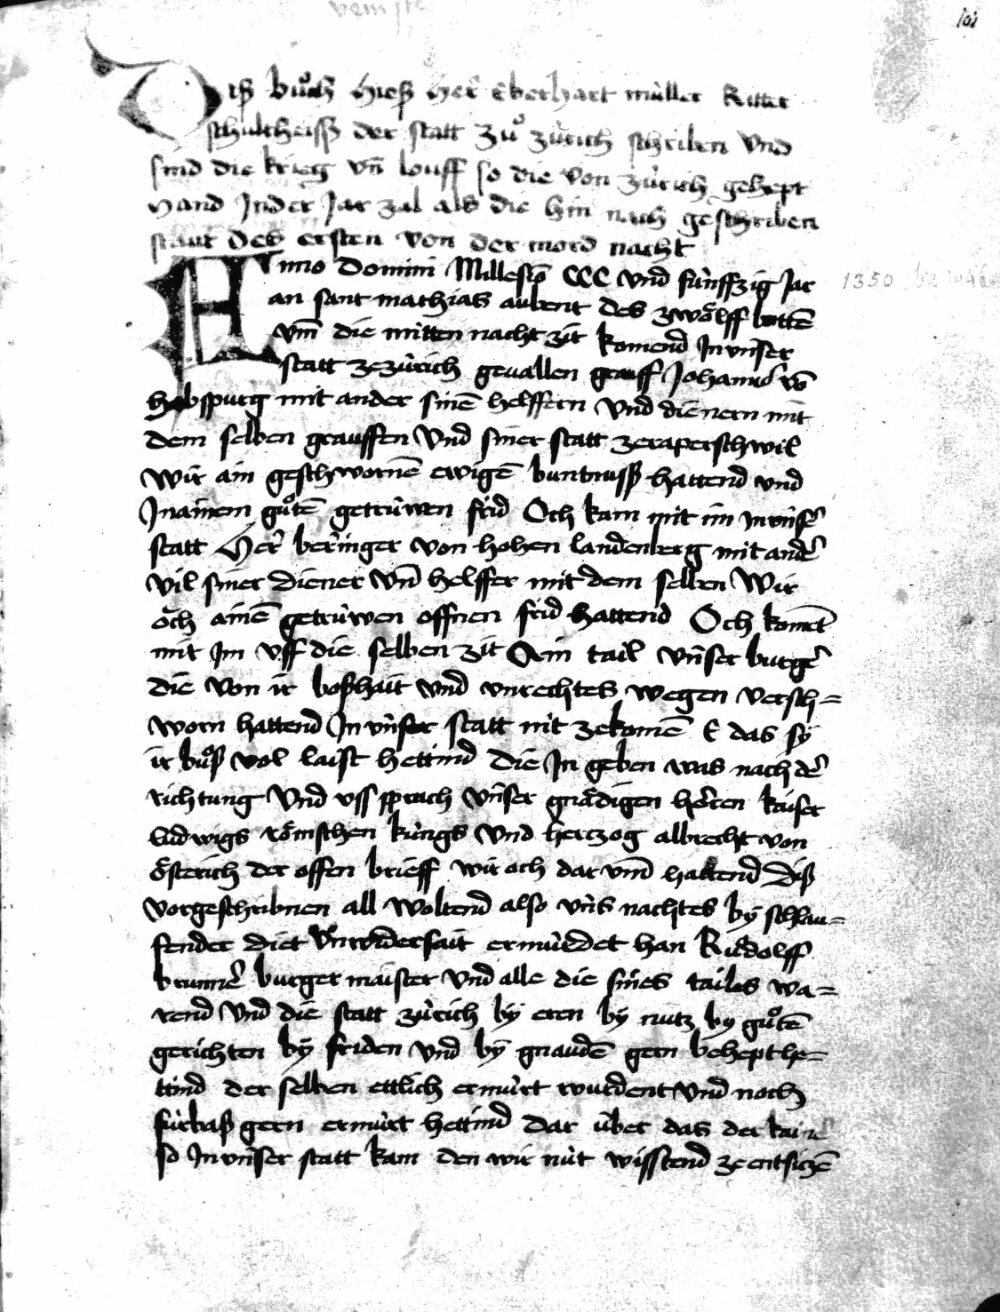 101
Diß bůch hieß her Eberhart müller Ritter
schultheiss der statt zů zürich schriben vnd
sind die krieg vn̄ louff so die von zürich gehept
hand Inder Jar zal als die hin nach geschriben
staut des ersten von der mord nacht
Anno Domini Millesīo CCC vnd fünffzig Jar
an sant mathias aubent des zwölff bottē
vm̄ die mitten nacht zit komend In vnser
statt ze zürich gevallen grauff Johans vō
habspurg mit ander sinē helffern vnd dienern mit
dem selben grauffen vnd siner statt ze raperschwil
wir ain geschwornē ewigē buntnuss hattend vnd
In ainem gůtē getrüwen frid Och kam mit im In vnser
statt Her beringer von hohen landenberg mit andr̄
vil siner diener vn̄ helffer mit dem selben wir
och ainē getrüwen offnen frid hattend Och komēt
mit Im vff die selben zit Ain tail vnser burgr̄
die von ir boßhait vnd vnrechtes wegen versch=
worn hattend In vnser statt nit ze komē E das sy
ir bůß vol laist hettind die In geben was nach dr̄
richtung vnd vss sprach vnser gnädigen herren kaiser
ludwigs römschen küngs vnd hertzog albrecht von
österich der offen brieff wir och dar vm̄ hattend Diß
vorgeschribnen all woltend also vns nachtes by schlau=
fender diet vnwidersait ermürdet han Rüdolff
brunnr̄ burger maister vnd alle die sines tailes wa=
rend vnd die statt zürich by eren by nutz by gůtē
gerichten by friden vnd by gnaudē gern behept he=
ttind der selben ettlich ermürt wurdent vnd noch
fürbaß gern ermürt hettind Dar über das der kain
so In vnser statt kam den wir nüt wisstend ze entsitzē
1350